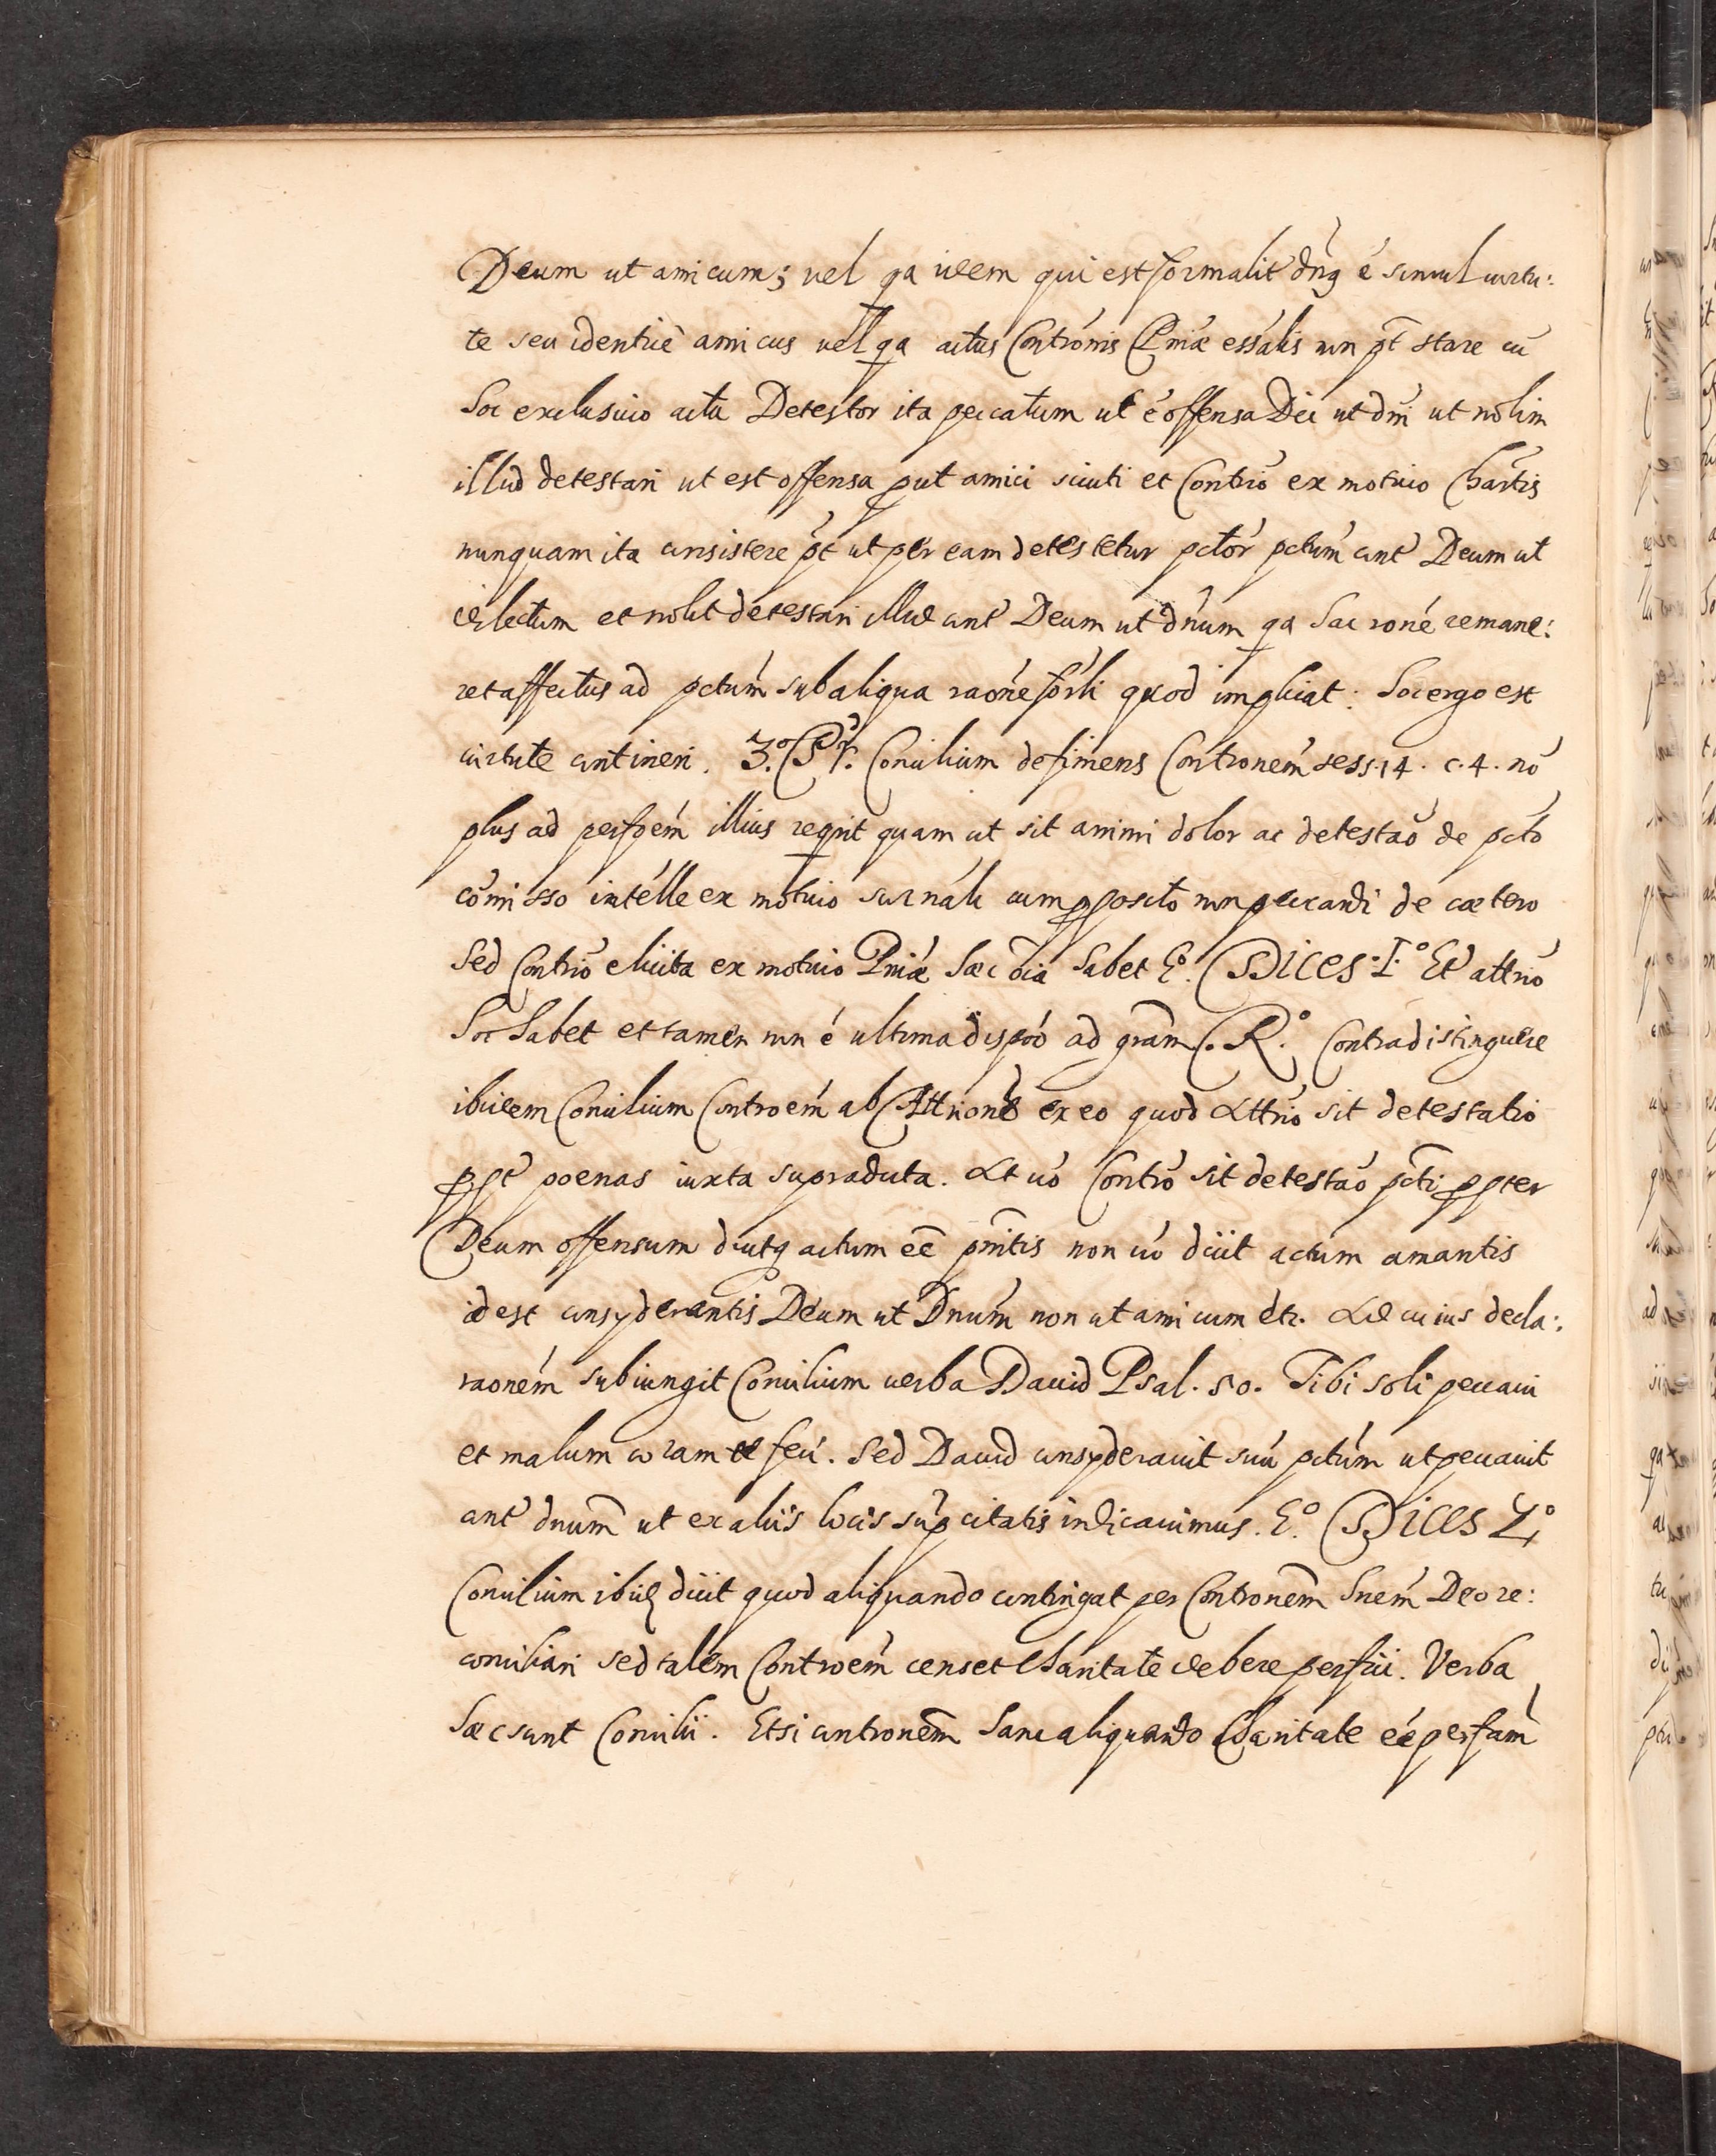 Deum ut amicum; uel qa idem qui est formalit̕ dn̄s é simul uirtu:
te seu identicè amicus uel qa actus Contrónis Pniǽ essális non pt̄ stare cū
hoc exclusiuo actu Detestor ita peccatum ut é offensa Dei ut dni̕ ut nolim
illud detestari ut est offensa put amici sicuti et Contrió ex motiuo Charitis
nunquam ita consistere pt̄ ut per eam detestetur pctór pctúm cont̕ Deum ut
dilectum et nolit detestari illud cont̕ Deum ut dńum qa hac roné remane:
ret affectus ad pctúm sub aliqua raóne fórli quod implicat: hoc ergo est
uirtute contineri. 3.º Pr̕. Concilium definiens Contronem̕ sess. 14. c. 4. nō
plus ad perfoém illius reqrit quam ut sit animi dolor ac detestaó de pcto
cōmisso intélle ex motiuo sur náli cum pposito non peccandi de cætero
sed Contrió elicita ex motiuo Pniǽ hæc oīa habet Eº. Dices 1.º Et̕ attrió
hoc habet et tamen non é ultima dispoó ad gram̄. Rº. Contradistinguere
ibidem Concilium Controém ab Attrione ex eo quod Attrió sit detestatio
ppt̕ poenas iuxta supradicta. At uó Contró sit detestaó pcti̕ ppter
Deum offensum dicitq actum eē pnītis non uó dicit actum amantis
id est consyderantis Deum ut Dnúm non ut amicum etc. Ad cuius decla:
raoném subiungit Concilium uerba Dauid Psal. 50. Tibi soli peccaui
et malum coram te feci. Sed Dauid consyderauit suū pctúm ut peccauit
cont̕ dnum̄ ut ex aliis locis sup̄ citatis indicauimus. E.º Dices 2.º
Concilium ibid dicit quod aliquando contingat per Contronem̄ hnem̕ Deo re:
conciliari sed talem Controem̕ censet Charitate debere perfici. Verba
hæc sunt Concilii. Etsi contronem̄ hanc aliquando Charitate eé perfam̕